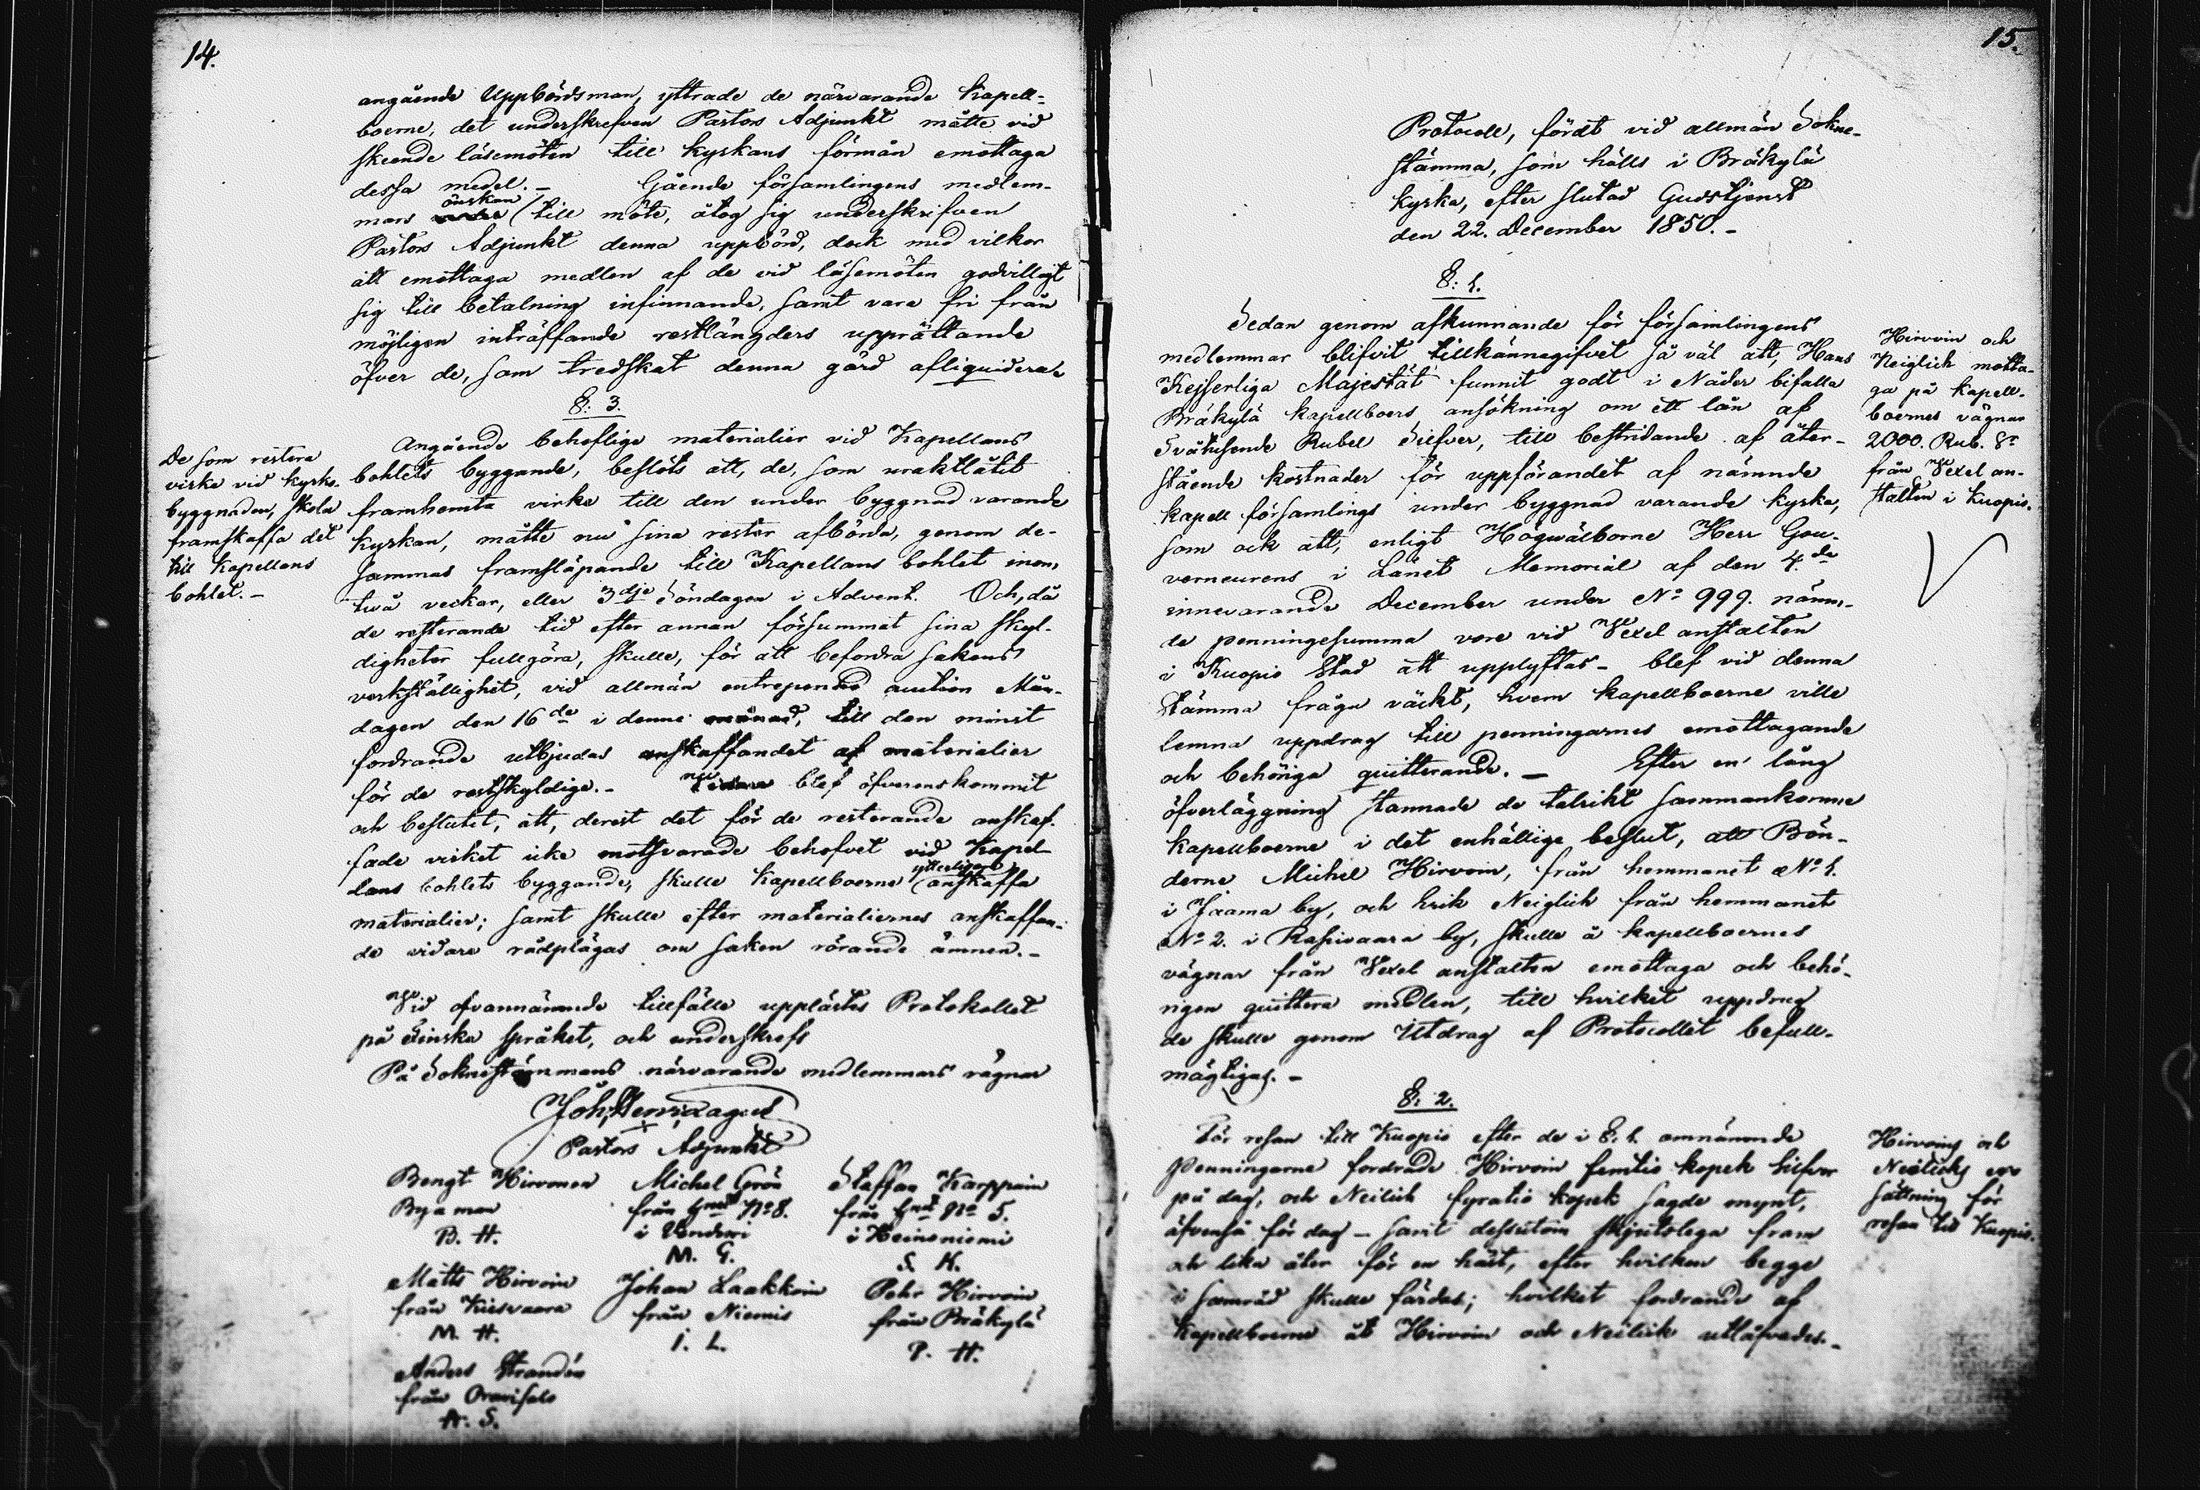 14.
angående Uppbördsman, yttrade de närvarande Kapell-
boerne, det underskrefven Pastors Adjunkt måtte vid
skeende läsemöten till kyrkans förmån emottaga
dessa medel. – Gående församlingens medlem-
mars önskan till möte, åtog sig underskrifven
Pastors Adjunkt denna uppbörd, dock med vilkor
att emottaga medlen af de vid läsemöten godvilligt
sig till betalning infinnande, samt vara fri från
möjligen inträffande restlängders upprättande
öfver de, som tredskat denna gärd afliquidera.
§: 3.
Angående behöflige materialier vid Kapellans
bohlets byggande, beslöts att, de, som uraktlåtit
framhemta virke till den under byggnad varande
kyrkan, måtte nu sina rester afbörda, genom de-
sammas framsläpande till Kapellans bohlet inom
två veckor, eller 3dje Söndagen i Advent. Och, då
de resterande tid efter annan försummat sina skyl-
digheter fullgöra, skulle, för att befordra sakens
verkställighet, vid allmän entreprenad auction Mån-
dagen den 16de i denna månad, till den minst
fordrande utbjudas anskaffandet af materialier
för de restskyldige. – Vidare blef öfverenskommit
och beslutit, att, derest det för de resterande anskaf-
fade virket icke motsvarade behofvet vid Kapel-
lans bohlets byggande, skulle kapellboerne ytterligare anskaffa
materialier; samt skulle efter materialiernes anskaffan-
de vidare rådplägas om saken rörande ämnen. –
De som restera
virke vid kyrko-
byggnaden, skola
framskaffa det
till Kapellans
bohlet. –
Vid ofvannämnde tillfälle upplästes Protokollet
på Finska språket, och underskrefs
På Sokneståmmans närvarande medlemmars vägnar
Joh. Henr.
Pastors Adjunkt
Bengt Hirvonen Michel Grön Staffan Karppain
Byaman från hmt No 8. från hmt No 5.
B. H. i i Heinoniemi
M. G. S. K.
Matts Hirvoin Johan Laakkoin Pehr Hirvoin
från Kiesvaara från Niemis från Bräkylä
M. H. I. L. P. H.
Anders Strandén
från Oravisalo
A. S.
15.
Protocoll, fördt vid allmän Sokne-
stämma, som hålls i Bräkylä
kyrka, efter slutad Gudstjenst
den 22. December 1850. –
§: 1.
Sedan genom afkunnande för församlingens
medlemmar blifvit tillkännagifvet så väl att, Hans
Kejserliga Majestät funnit godt i Nåder bifalla
Bräkylä kapellboers ansökning om ett lån af
Tvåtusende Rubel Silfver, till bestridande af åter-
stående kostnader för uppförandet af nämnde
kapell församlings under byggnad varande kyrka,
som ock att, enligt Högvälborne Herr Gou-
verneurens i Länet Memorial af den 4.de
innevarande December under No 999. nämn-
de penningesumma vore vid Vexel anstalten
i Kuopio Stad att upplyftas – blef vid denna
stämma fråga väckt, hvem kapellboerne ville
lemna uppdrag till penningarnes emottagande
och behöriga quitterande. – Efter en lång
öfverläggning stannade de talrikt sammankomne
kapellboerne i det enhällige beslut, att Bön-
derne Michel Hirvoin, från hemmanet No 1.
i Jaama by, och Erik Neiglick från hemmanet
No 2. i Rasivaara by, skulle å kapellboernes
vägnar från Vexel anstalten emottaga och behö-
rigen quittera medlen, till hvilket uppdrag
de skulle genom Utdrag af Protocollet befull-
mägtigas. –
Hirvoin och
Neiglick motta-
ga på kapell-
boernes vägnar
2000. Rub. Sr
från Vexel an-
stalten i Kuopio.
§: 2.
För resan till Kuopio efter de i §. 1. omnämnde
Penningarne fordrade Hirvoin femtio kopek Silfver
på dag, och Neilick fyratio kopek sagde mynt,
äfvenså för dag – samt dessutom skjutslega fram
och lika åter för en häst, efter hvilken begge
i samråd skulle färdas; hvilket fordrande af
kapellboerne åt Hirvoin och Neilick utlåfvades. –
Hirvoins och
Neilicks er-
sättning för
resan till Kuopio.